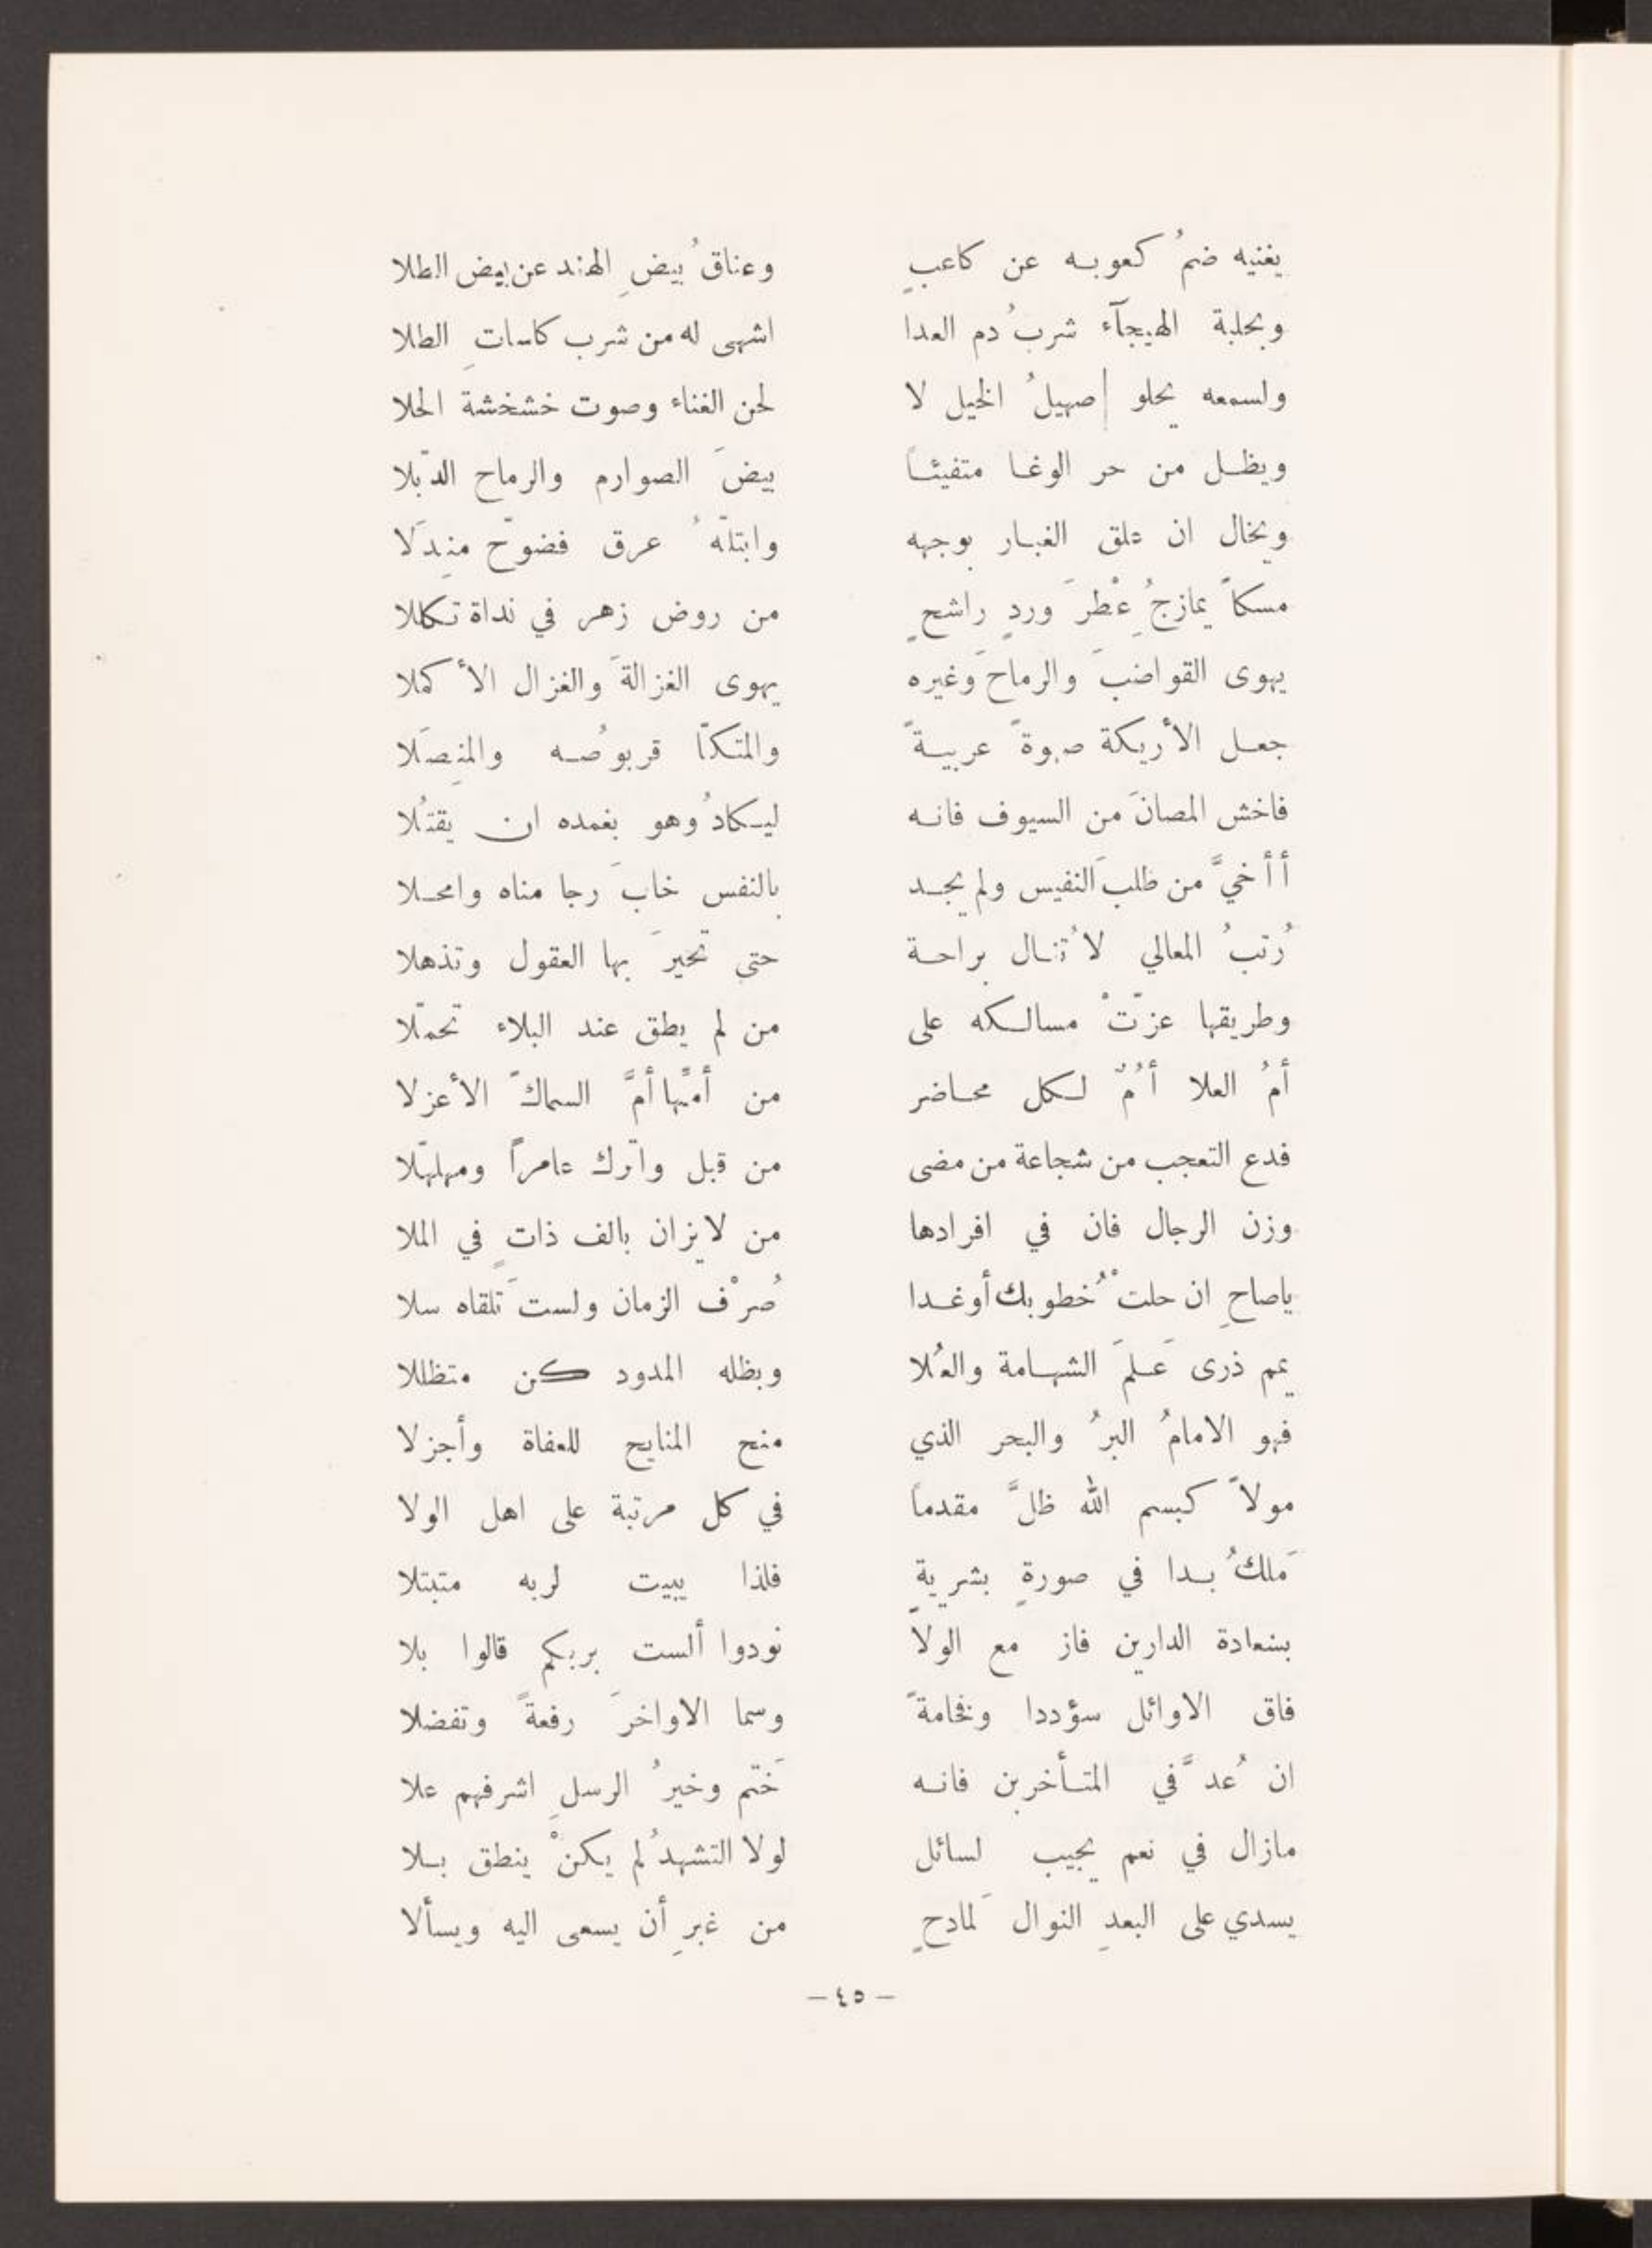 يغنيه ضمُ كعوبه عن كاعبٍ وعناقُ بيضِ الهند عن بيض الطلا
وبحلبة الهيجآء شربُ دم العدا اشهى له من شرب كاساتِ الطلا
ولسمعه يحلو صهيلُ الخيل لا لحن الغناء وصوت خشخشة الحلا
ويظل من حر الوغا متفيئاً بيضَ الصوارم والرماح الدبّلا
ويخال ان علق الغبار بوجهه وابتلّهُ عرق فضوّح مندَلا
مسكاً يمازجُ عِطْرَ وردٍ راشحٍ من روض زهر في نداة تكللا
يهوى القواضبَ والرماحَ وغيره يهوى الغزالةَ والغزال الأكملا
جعل الأريكة صهوةً عربيةً والمتكّا قربوُصه والمنِصَلا
فاخش المصانَ من السيوف فانه ليكادُ وهو بغمده ان يقتُلا
أأخيَّ من طلبَ النفيس ولم يجد بالنفس خابَ رجا مناه وامحلا
رُتبُ المعالي لا تُنال براحة حتى تحيرَ بها العقول وتذهلا
وطريقها عزّتْ مسالكه على من لم يطق عند البلاء تحمّلا
أمُ العلا أُمٌ لكل محاضر من أمَّها أمَّ السماكَ الأعزلا
فدع التعجب من شجاعة من مضى من قبل واترك عامراً ومهلهلا
وزن الرجال فان في افرادها من لا يزان بالف ذاتٍ في الملا
ياصاحِ ان حلتْ خُطوبك أوغدا صُرْف الزمان ولست تَلقاه سلا
يمم ذرى عَلمَ الشهامة والعُلا وبظله المدود كن متظللا
فهو الامامُ البرُ والبحر الذي منح المنايح للعفاة وأجزلا
مولاً كبسم الله ظلَّ مقدماً في كل مرتبة على اهل الولا
مَلكُ بدا في صورةٍ بشريةٍ فلذا يبيت لربه متبتلا
بسعادة الدارين فاز مع الولا نودوا ألست بربكم قالوا بلا
فاق الاوائل سؤددا وفخامةً وسما الاواخرَ رفعةً وتفضلا
ان عُدَّ في المتأخرين فانه خَتم وخيرُ الرسلِ اشرفهم علا
مازال في نعم يجيب لسائل لولا التشهدُ لم يكنْ ينطق بلا
يسدي على البعدِ النوال لمَادحٍ من غيرِ أن يسعى اليه ويسألا
— ٤٥ —